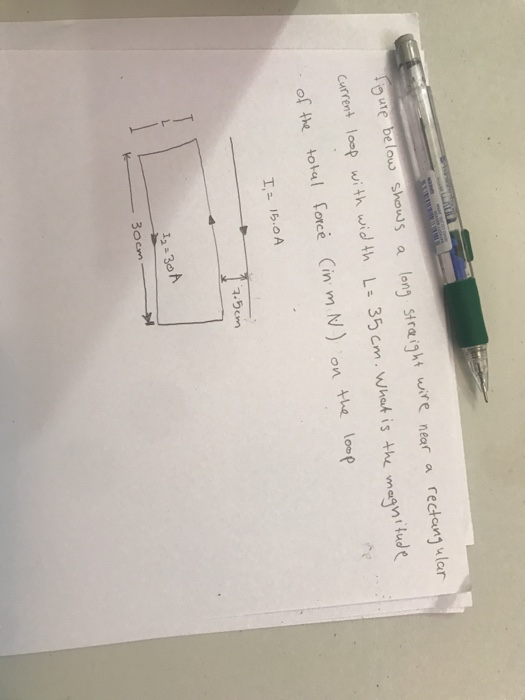 figure below shows a long straight wire near a rectangular
current loop with width L = 35 cm. What is the magnitude
of the total force (in m N) on the loop
I₁ = 15.0 A
7.5cm
I₂ = 30 A
L
30cm